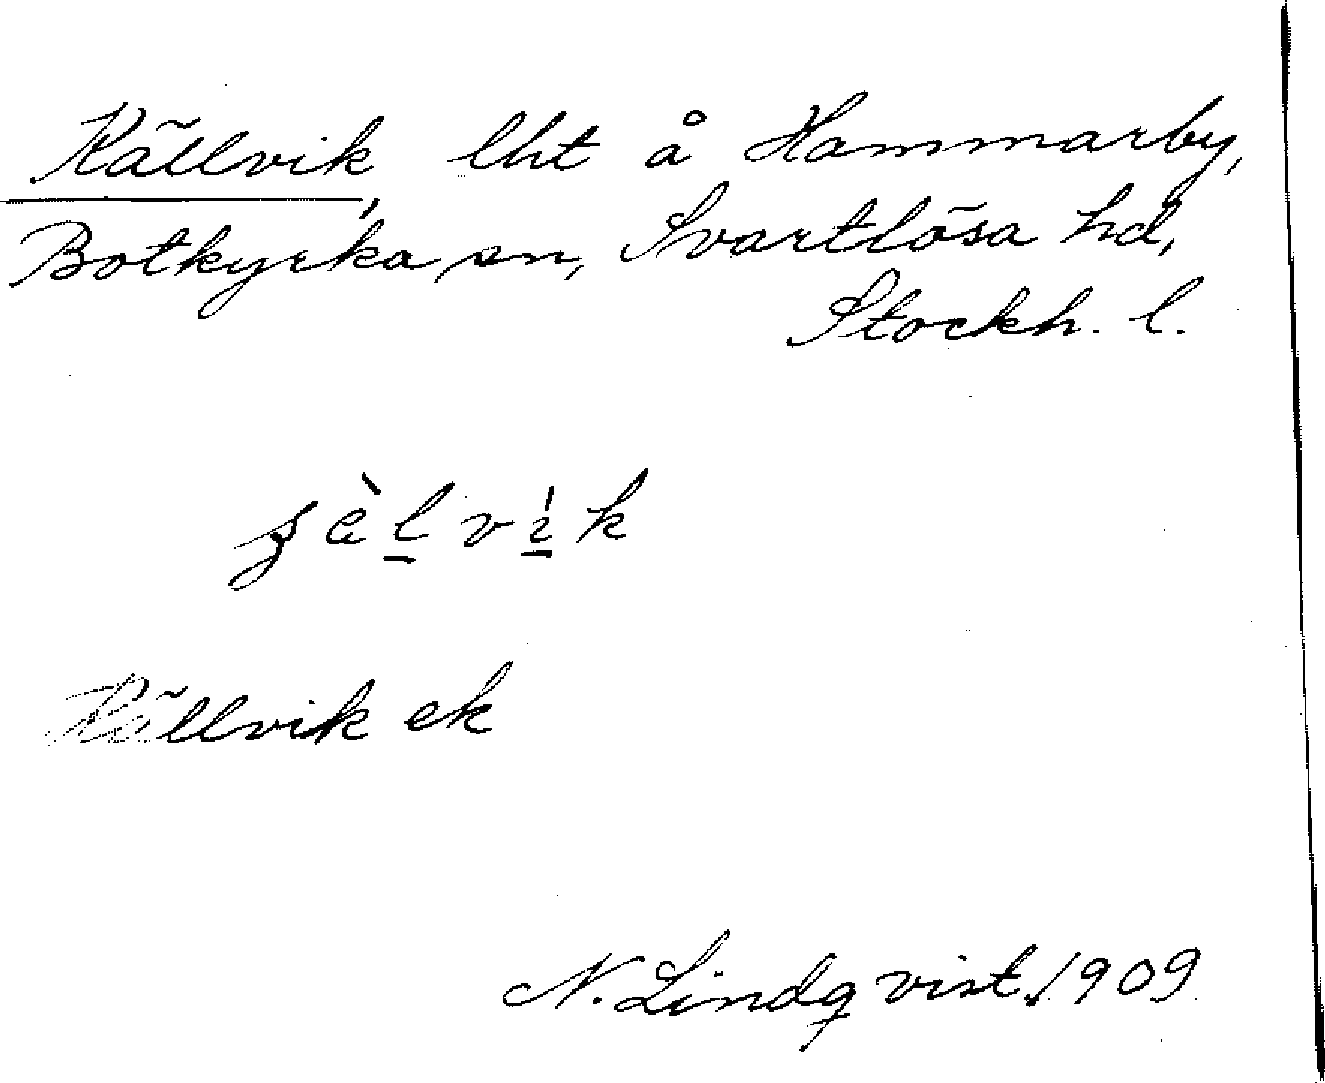 Källvik, lht å Hammarby,
Botkyrka sn, Svartlösa hd,
Stockh. l.
Källvik ek
N. Lindqvist 1909